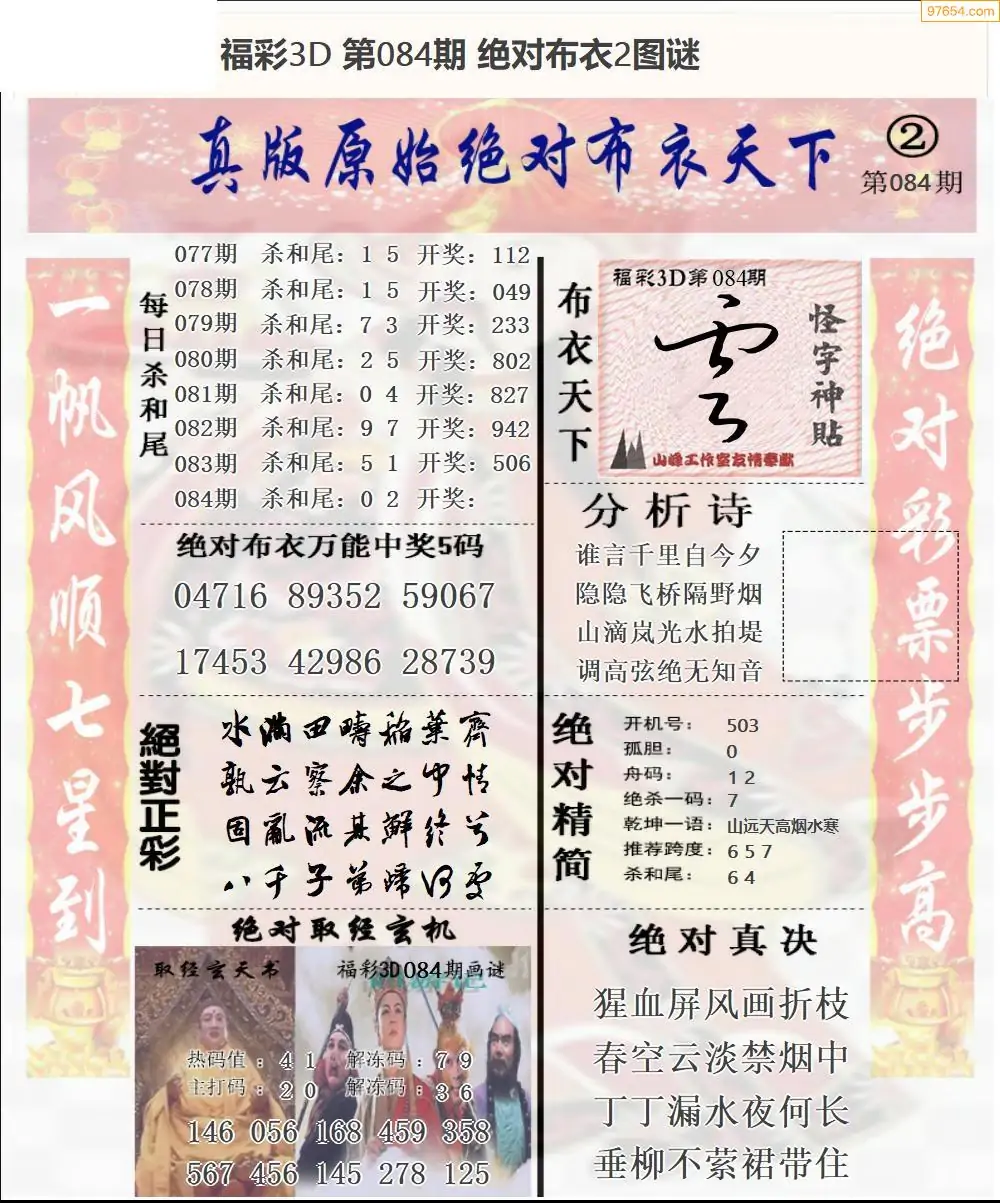 97654.com
福彩3D 第084期 绝对布衣2图谜
真版原始绝对布衣天下
②
第084期
一帆风顺七星到
每日杀和尾
077期 杀和尾：1 5 开奖：112
078期 杀和尾：1 5 开奖：049
079期 杀和尾：7 3 开奖：233
080期 杀和尾：2 5 开奖：802
081期 杀和尾：0 4 开奖：827
082期 杀和尾：9 7 开奖：942
083期 杀和尾：5 1 开奖：506
084期 杀和尾：0 2 开奖：
绝对布衣万能中奖5码
04716 89352 59067
17453 42986 28739
絕對正彩
水满田疇稲葉齊
孰云察余之中情
固亂流其鮮終兮
八千子弟歸何處
绝对取经玄机
取经玄天书
福彩3D084期画谜
热码值：4 1 解冻码：7 9
主打码：2 0 解冻码：3 6
146 056 168 459 358
567 456 145 278 125
布衣天下
福彩3D第084期
怪字神贴
山峰工作室友情奉献
分析诗
谁言千里自今夕
隐隐飞桥隔野烟
山滴岚光水拍堤
调高弦绝无知音
绝对精简
开机号：503
孤胆：0
舟码：1 2
绝杀一码：7
乾坤一语：山远天高烟水寒
推荐跨度：6 5 7
杀和尾：6 4
绝对真决
猩血屏风画折枝
春空云淡禁烟中
丁丁漏水夜何长
垂柳不萦裙带住
绝对彩票步步高